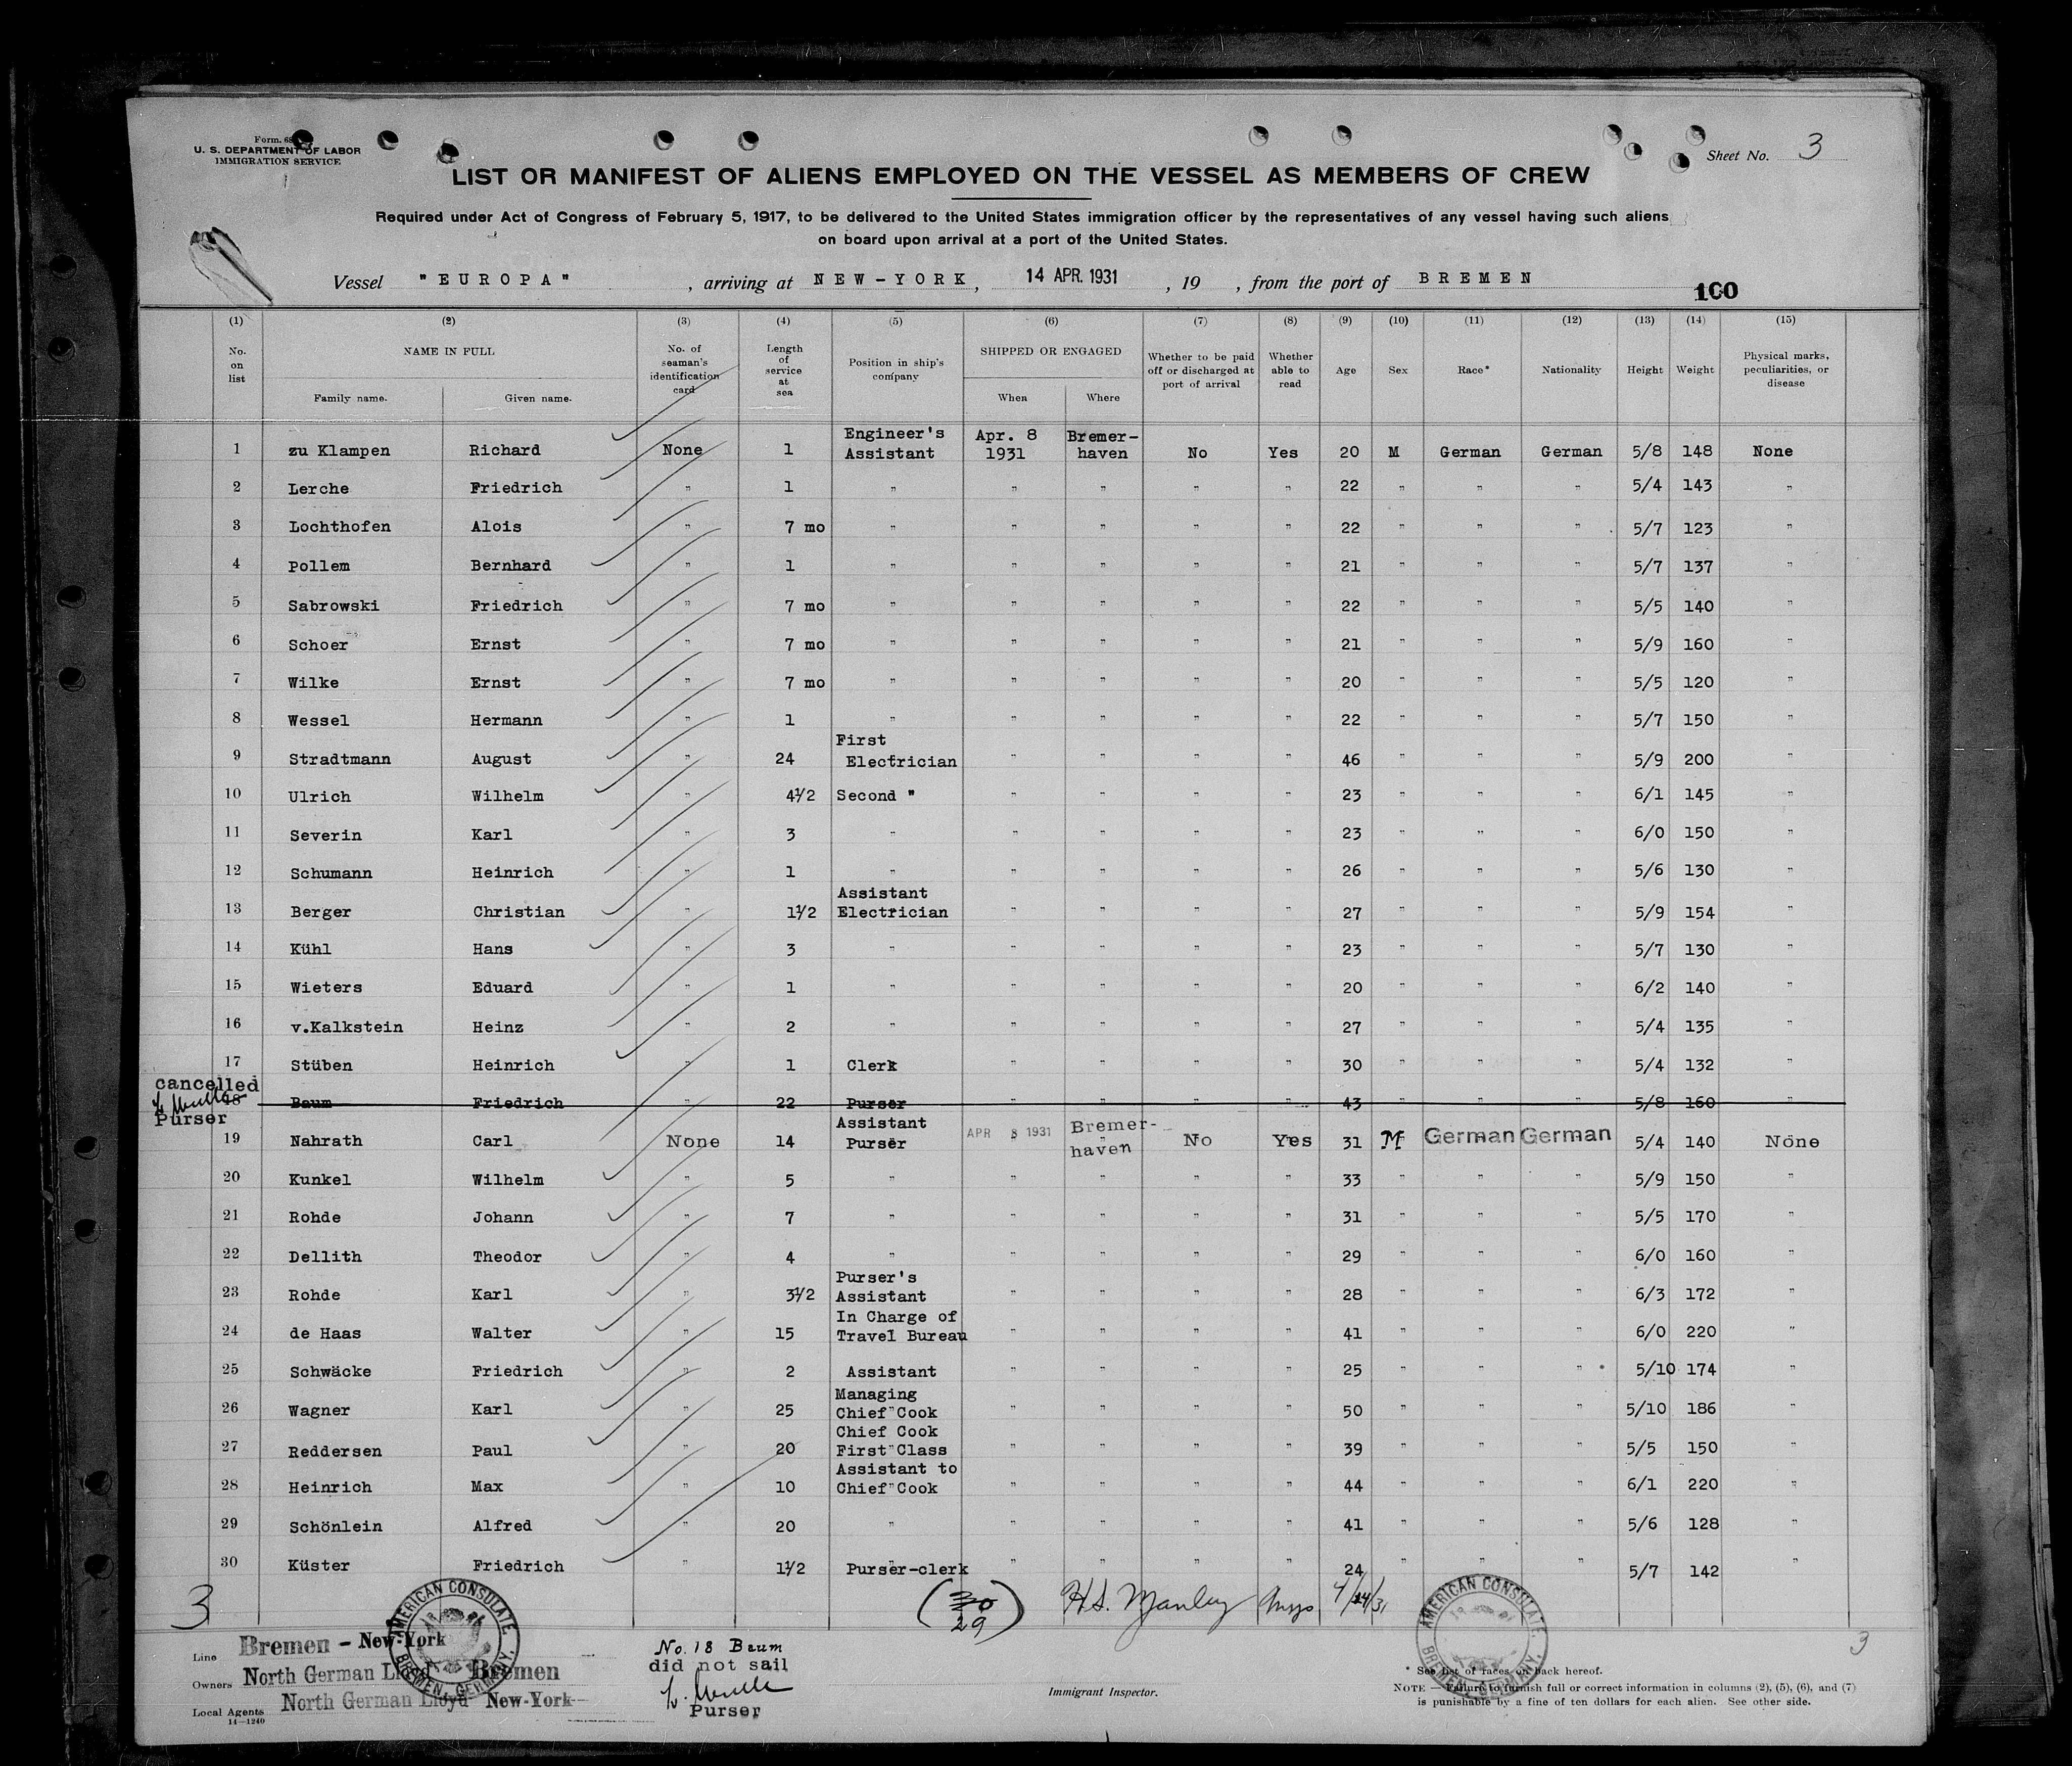 Form. 68
U. S. DEPARTMENT OF LABOR
IMMIGRATION SERVICE
Sheet No. 3
LIST OR MANIFEST OF ALIENS EMPLOYED ON THE VESSEL AS MEMBERS OF CREW
Required under Act of Congress of February 5, 1917, to be delivered to the United States immigration officer by the representatives of any vessel having such aliens
on board upon arrival at a port of the United States.
Vessel "EUROPA", arriving at NEW-YORK, 14 APR. 1931, 19 , from the port of BREMEN
100
(1) (2) (3) (4) (5) (6) (7) (8) (9) (10) (11) (12) (13) (14) (15)
No. on list NAME IN FULL Family name. Given name. No. of seaman's identification card Length of service at sea Position in ship's company SHIPPED OR ENGAGED When Where Whether to be paid off or discharged at port of arrival Whether able to read Age Sex Race* Nationality Height Weight Physical marks, peculiarities, or disease
1 zu Klampen Richard None 1 Engineer's Assistant Apr. 8 1931 Bremer-haven No Yes 20 M German German 5/8 148 None
2 Lerche Friedrich " 1 " " " " " 22 " " " 5/4 143 "
3 Lochthofen Alois " 7 mo " " " " " 22 " " " 5/7 123 "
4 Pollem Bernhard " 1 " " " " " 21 " " " 5/7 137 "
5 Sabrowski Friedrich " 7 mo " " " " " 22 " " " 5/5 140 "
6 Schoer Ernst " 7 mo " " " " " 21 " " " 5/9 160 "
7 Wilke Ernst " 7 mo " " " " " 20 " " " 5/5 120 "
8 Wessel Hermann " 1 " " " " " 22 " " " 5/7 150 "
9 Stradtmann August " 24 First Electrician " " " " 46 " " " 5/9 200 "
10 Ulrich Wilhelm " 4½ Second " " " " " 23 " " " 6/1 145 "
11 Severin Karl " 3 " " " " " 23 " " " 6/0 150 "
12 Schumann Heinrich " 1 " " " " " 26 " " " 5/6 130 "
13 Berger Christian " 1½ Assistant Electrician " " " " 27 " " " 5/9 154 "
14 Kühl Hans " 3 " " " " " 23 " " " 5/7 130 "
15 Wieters Eduard " 1 " " " " " 20 " " " 6/2 140 "
16 v.Kalkstein Heinz " 2 " " " " " 27 " " " 5/4 135 "
17 Stüben Heinrich " 1 Clerk " " " " 30 " " " 5/4 132 "
cancelled
18 Baum Friedrich " 22 Purser " " " " 43 " " " 5/8 160 "
Purser
19 Nahrath Carl None 14 Assistant Purser APR 8 1931 Bremer-haven No Yes 31 M German German 5/4 140 None
20 Kunkel Wilhelm " 5 " " " " " 33 " " " 5/9 150 "
21 Rohde Johann " 7 " " " " " 31 " " " 5/5 170 "
22 Dellith Theodor " 4 " " " " " 29 " " " 6/0 160 "
23 Rohde Karl " 3½ Purser's Assistant " " " " 28 " " " 6/3 172 "
24 de Haas Walter " 15 In Charge of Travel Bureau " " " " 41 " " " 6/0 220 "
25 Schwäcke Friedrich " 2 Assistant " " " " 25 " " " 5/10 174 "
26 Wagner Karl " 25 Managing Chief Cook " " " " 50 " " " 5/10 186 "
27 Reddersen Paul " 20 Chief Cook First Class " " " " 39 " " " 5/5 150 "
28 Heinrich Max " 10 Assistant to Chief Cook " " " " 44 " " " 6/1 220 "
29 Schönlein Alfred " 20 " " " " " 41 " " " 5/6 128 "
30 Küster Friedrich " 1½ Purser-clerk " " " " 24 " " " 5/7 142 "
3
(30
29)
H.S. Manley 4/14/31
AMERICAN CONSULATE. BREMEN, GERMANY.
AMERICAN CONSULATE. BREMEN, GERMANY.
Line Bremen - New-York
Owners North German Lloyd Bremen
Local Agents North German Lloyd New-York
14—1240
No. 18 Baum
did not sail
Purser
Immigrant Inspector.
3
* See list of races on back hereof.
NOTE — Failure to furnish full or correct information in columns (2), (5), (6), and (7)
is punishable by a fine of ten dollars for each alien. See other side.